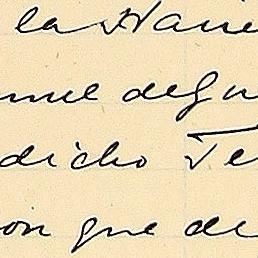 la Haci
nuel de
dicho Te
on que de